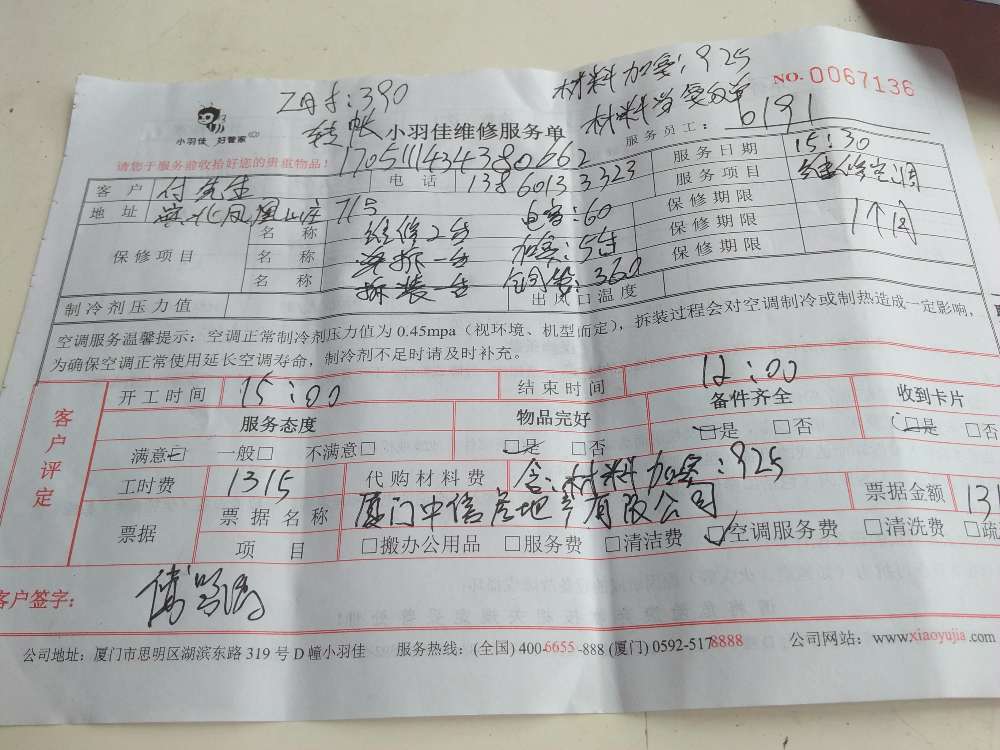 工时:390
材料加寄:925
NO.0067136
小羽佳 好管家
转帐
小羽佳维修服务单
服务员工: 6191
请您于服务验收拾好您的贵重物品!
170511143438 0662
服务日期 15:30
客户 付先生 电话 13860133323 服务项目 维修空调
地址 71号 保修期限 1个月
保修项目
名称 维修2台 电容:60 保修期限
名称 加 :5台 保修期限
名称 拆装一台 铜管:360
制冷剂压力值 出风口温度
空调服务温馨提示:空调正常制冷剂压力值为 0.45mpa(视环境、机型而定),拆装过程会对空调制冷或制热造成一定影响,
为确保空调正常使用延长空调寿命,制冷剂不足时请及时补充。
客户评定
开工时间 15:00 结束时间 12:00
服务态度 物品完好 备件齐全 收到卡片
满意□ 一般□ 不满意□ □是 □否 □是 □否 □是 □否
工时费 1315 代购材料费 含:材料加寄:925
票据 票据名称 厦门中信房地产有限公司 票据金额 13
项目 □搬办公用品 □服务费 □清洁费 □空调服务费 □清洗费 □疏
客户签字:
公司地址:厦门市思明区湖滨东路 319 号 D 幢小羽佳 服务热线:(全国) 400-6655-888 (厦门) 0592-5178888 公司网站:www.xiaoyujia.com